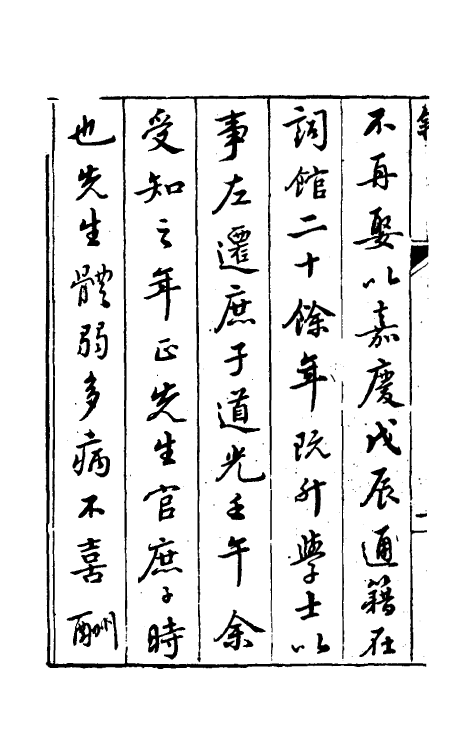 不再娶以嘉慶戊辰通籍在
詞館二十餘年既升學士以
事左遷庶子道光壬午余
受知之年正先生官庶子時
也先生體弱多病不喜酬